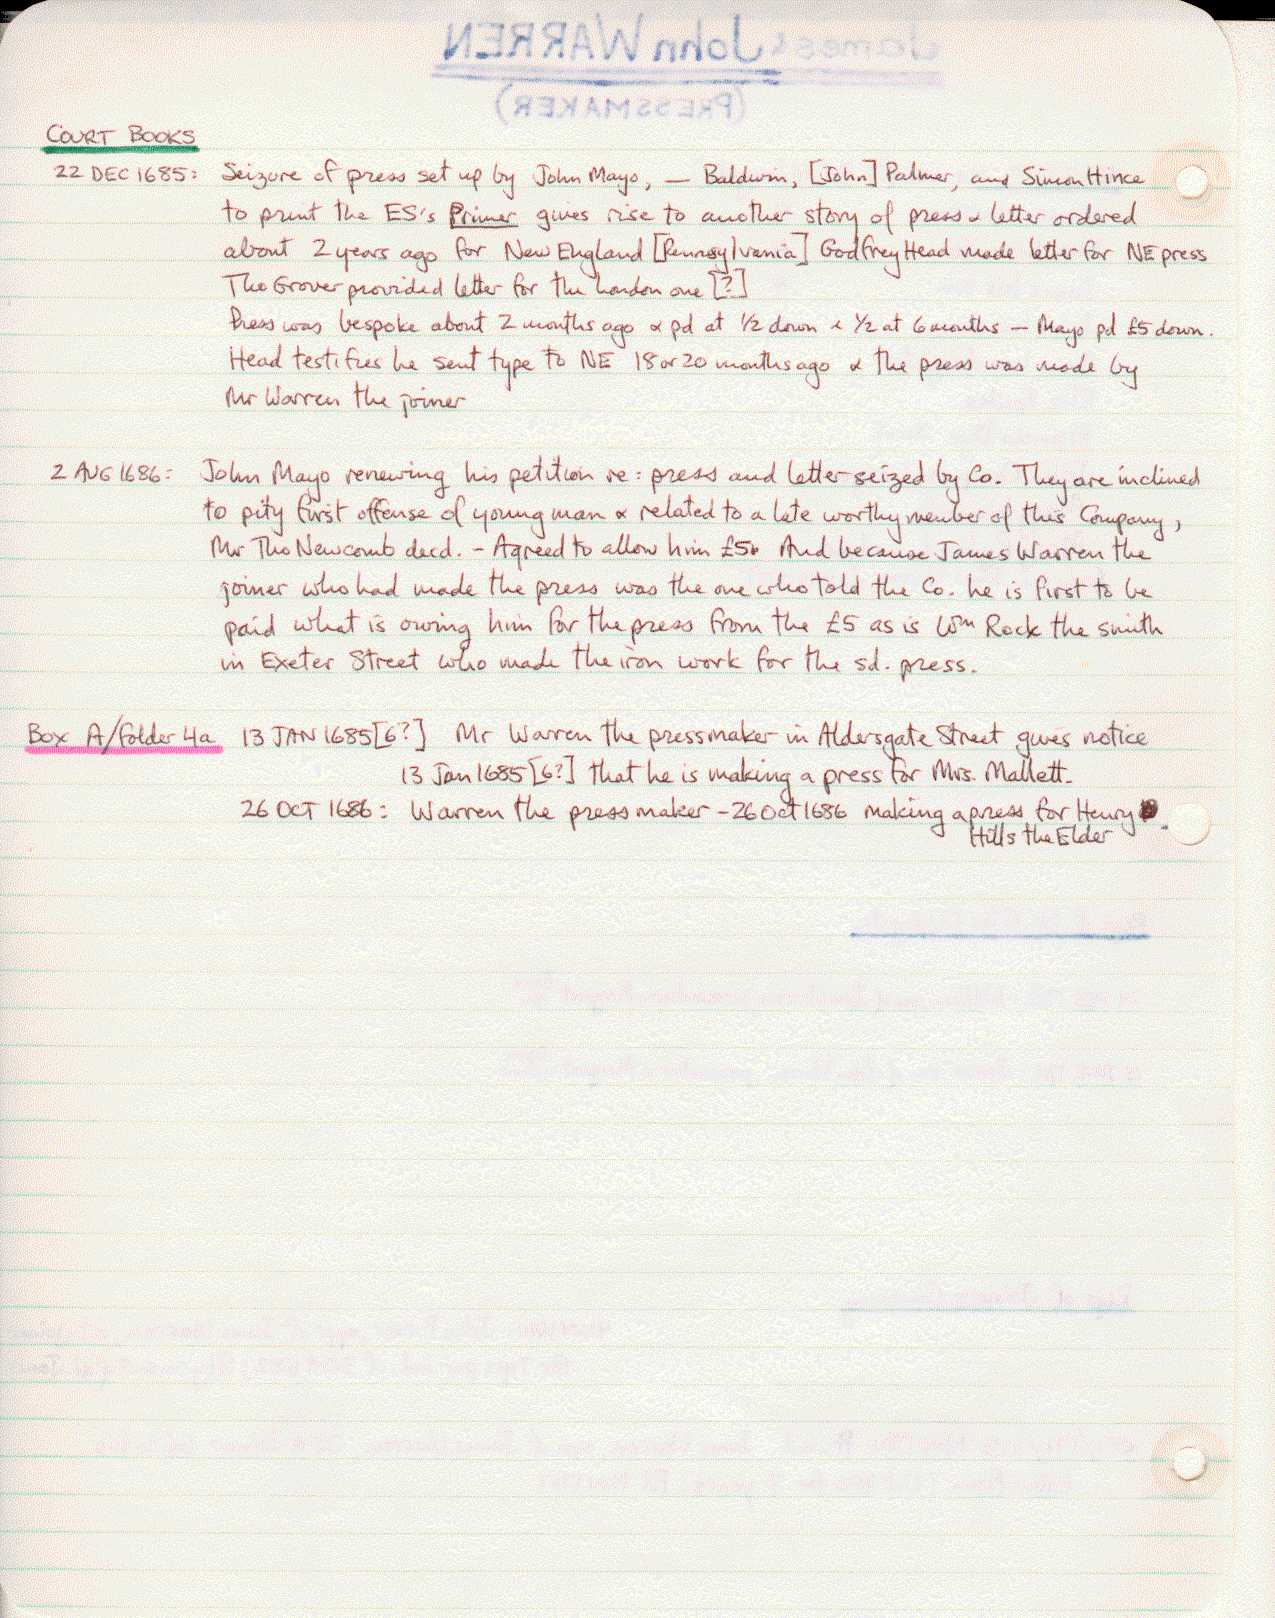 James & John WARREN
(PRESSMAKER)
COURT BOOKS
22 DEC 1685: Seizure of press set up by John Mayo, — Baldwin, [John] Palmer, and Simon Hince
to print the ES's Primer gives rise to another story of press & letter ordered
about 2 years ago for New England [Pennsylvania] Godfrey Head made letter for NE press
Tho Grover provided letter for the London one [?]
Press was bespoke about 2 months ago & pd at 1/2 down & 1/2 at 6 months — Mayo pd £5 down.
Head testifies he sent type to NE 18 or 20 months ago & the press was made by
Mr Warren the joiner
2 AUG 1686: John Mayo renewing his petition re: press and letter seized by Co. They are inclined
to pity first offense of young man & related to a late worthy member of this Company,
Mr Tho Newcomb decd. - Agreed to allow him £5. And because James Warren the
joiner who had made the press was the one who told the Co. he is first to be
paid what is owing him for the press from the £5 as is Wm Rock the smith
in Exeter Street who made the iron work for the sd. press.
Box A/folder 4a 13 JAN 1685[6?] Mr Warren the pressmaker in Aldersgate Street gives notice
13 Jan 1685[6?] that he is making a press for Mrs. Mallett.
26 OCT 1686: Warren the pressmaker - 26 Oct 1686 making a press for Henry
Hills the Elder